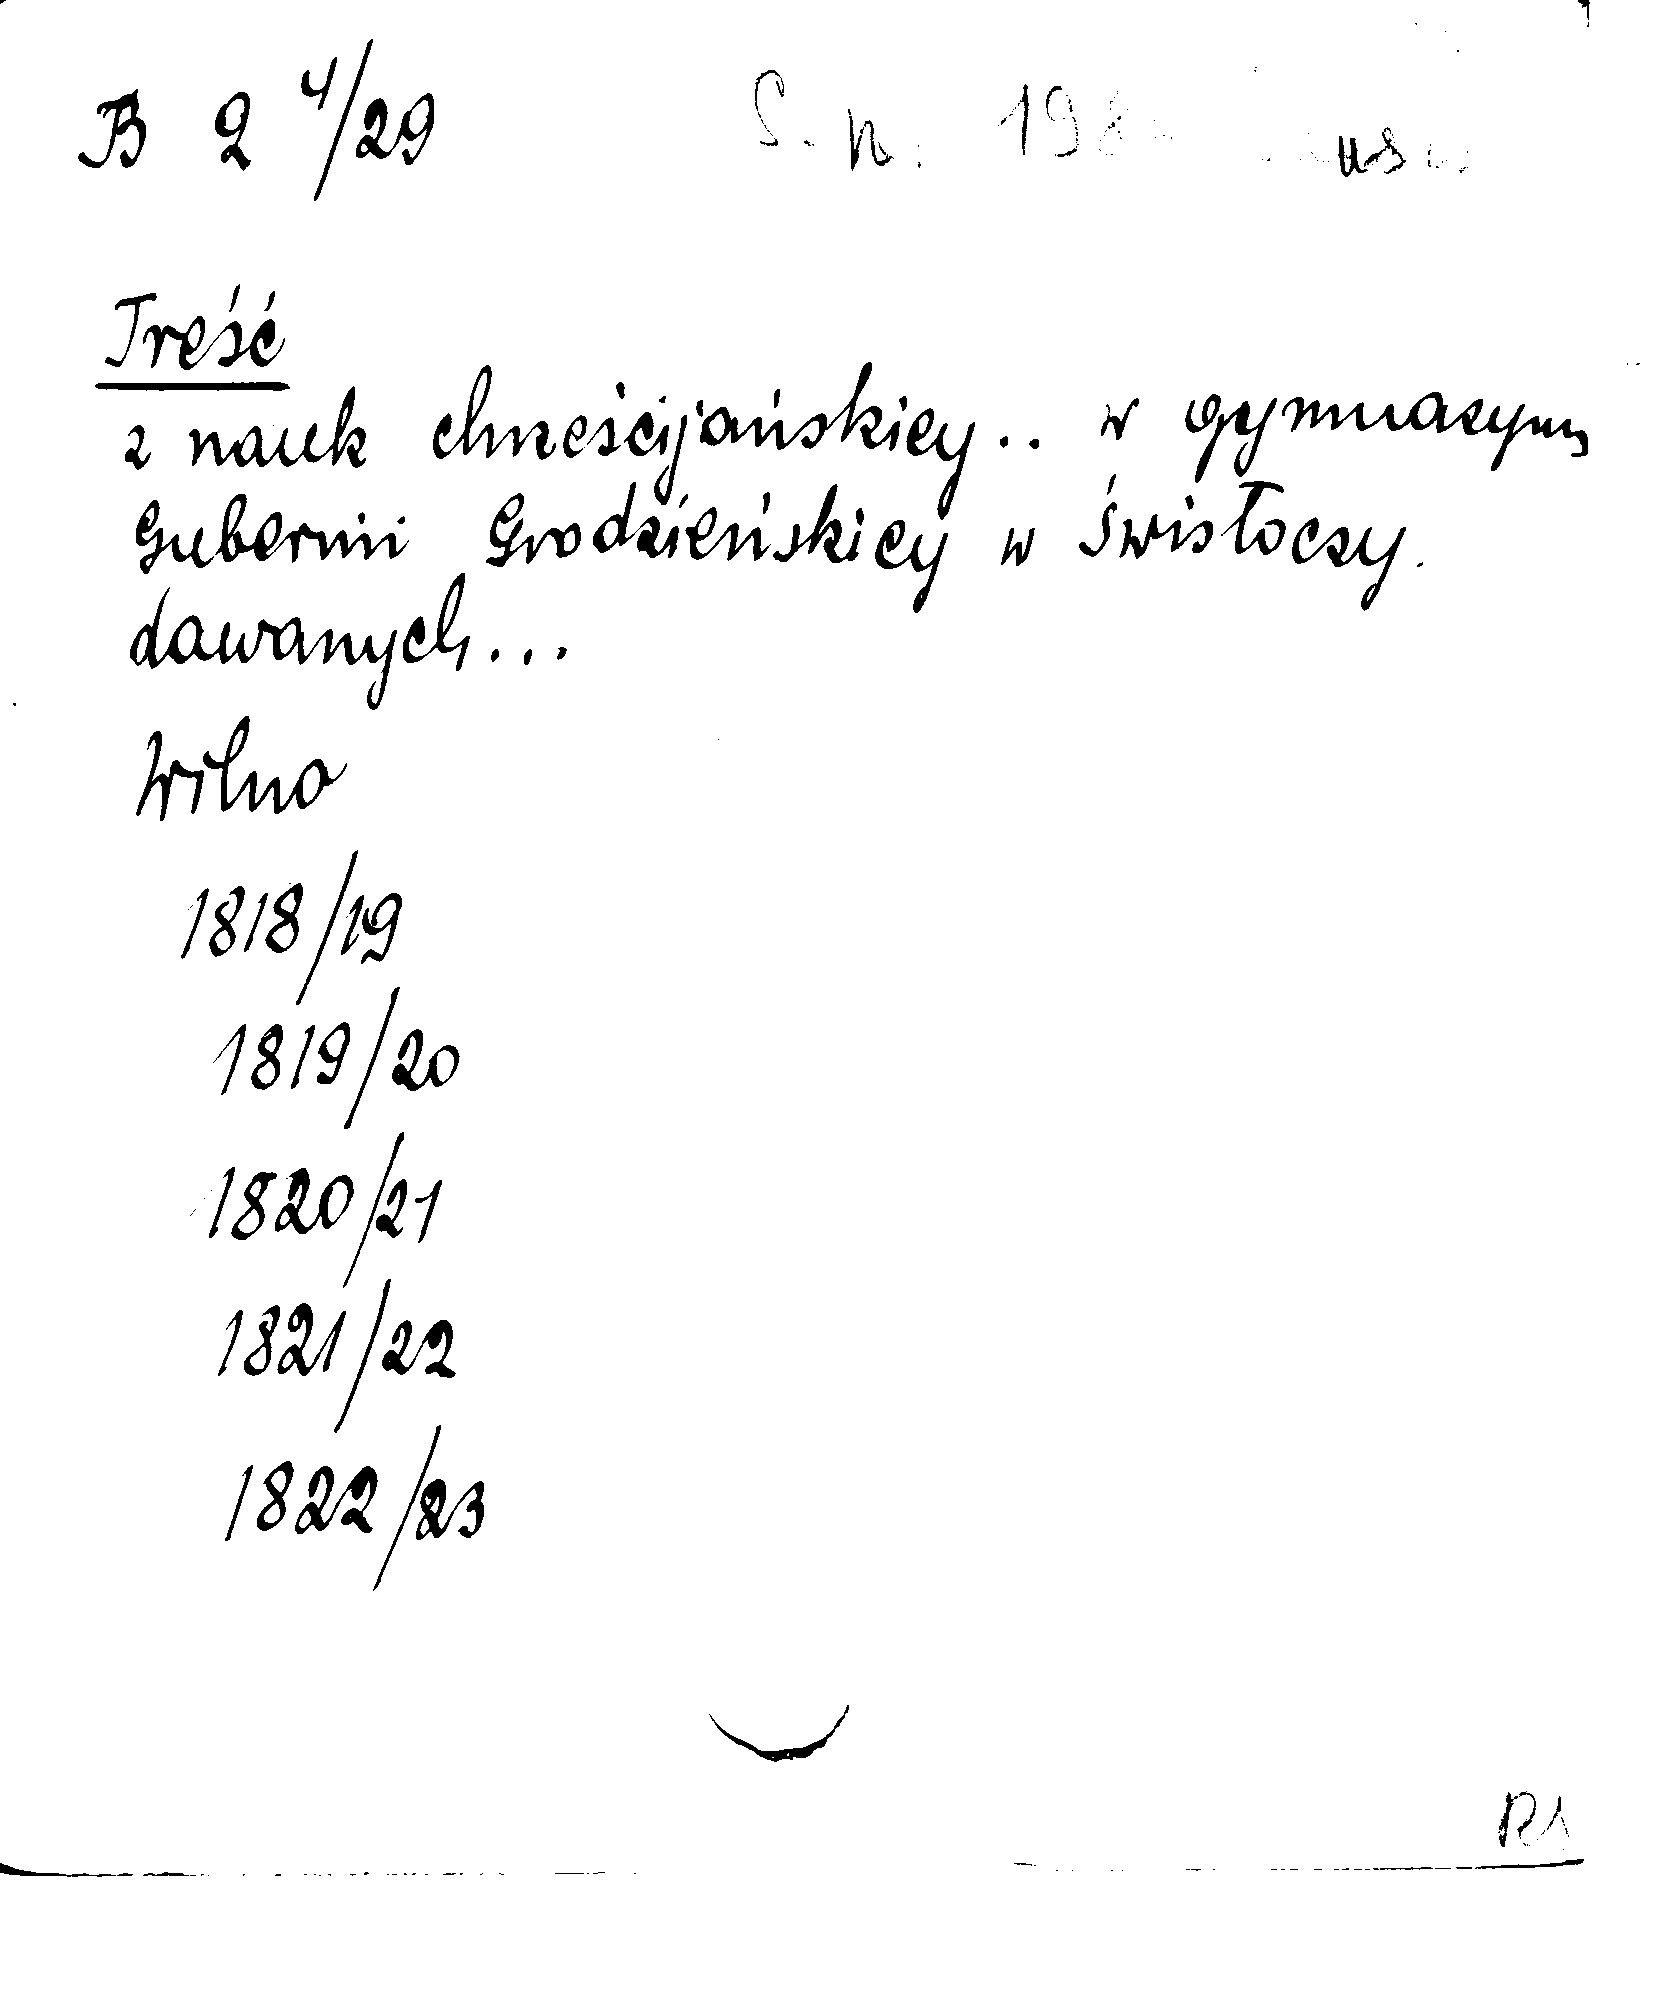 B 2 4/29
S. n.
Treść
z nauk chrześcijańskiey .. w gymnazyum
Gubernii Grodzieńskiey w Świsłoczy.
dawanych...
Wilno
1818/19
1819/20
1820/21
1821/22
1822/23